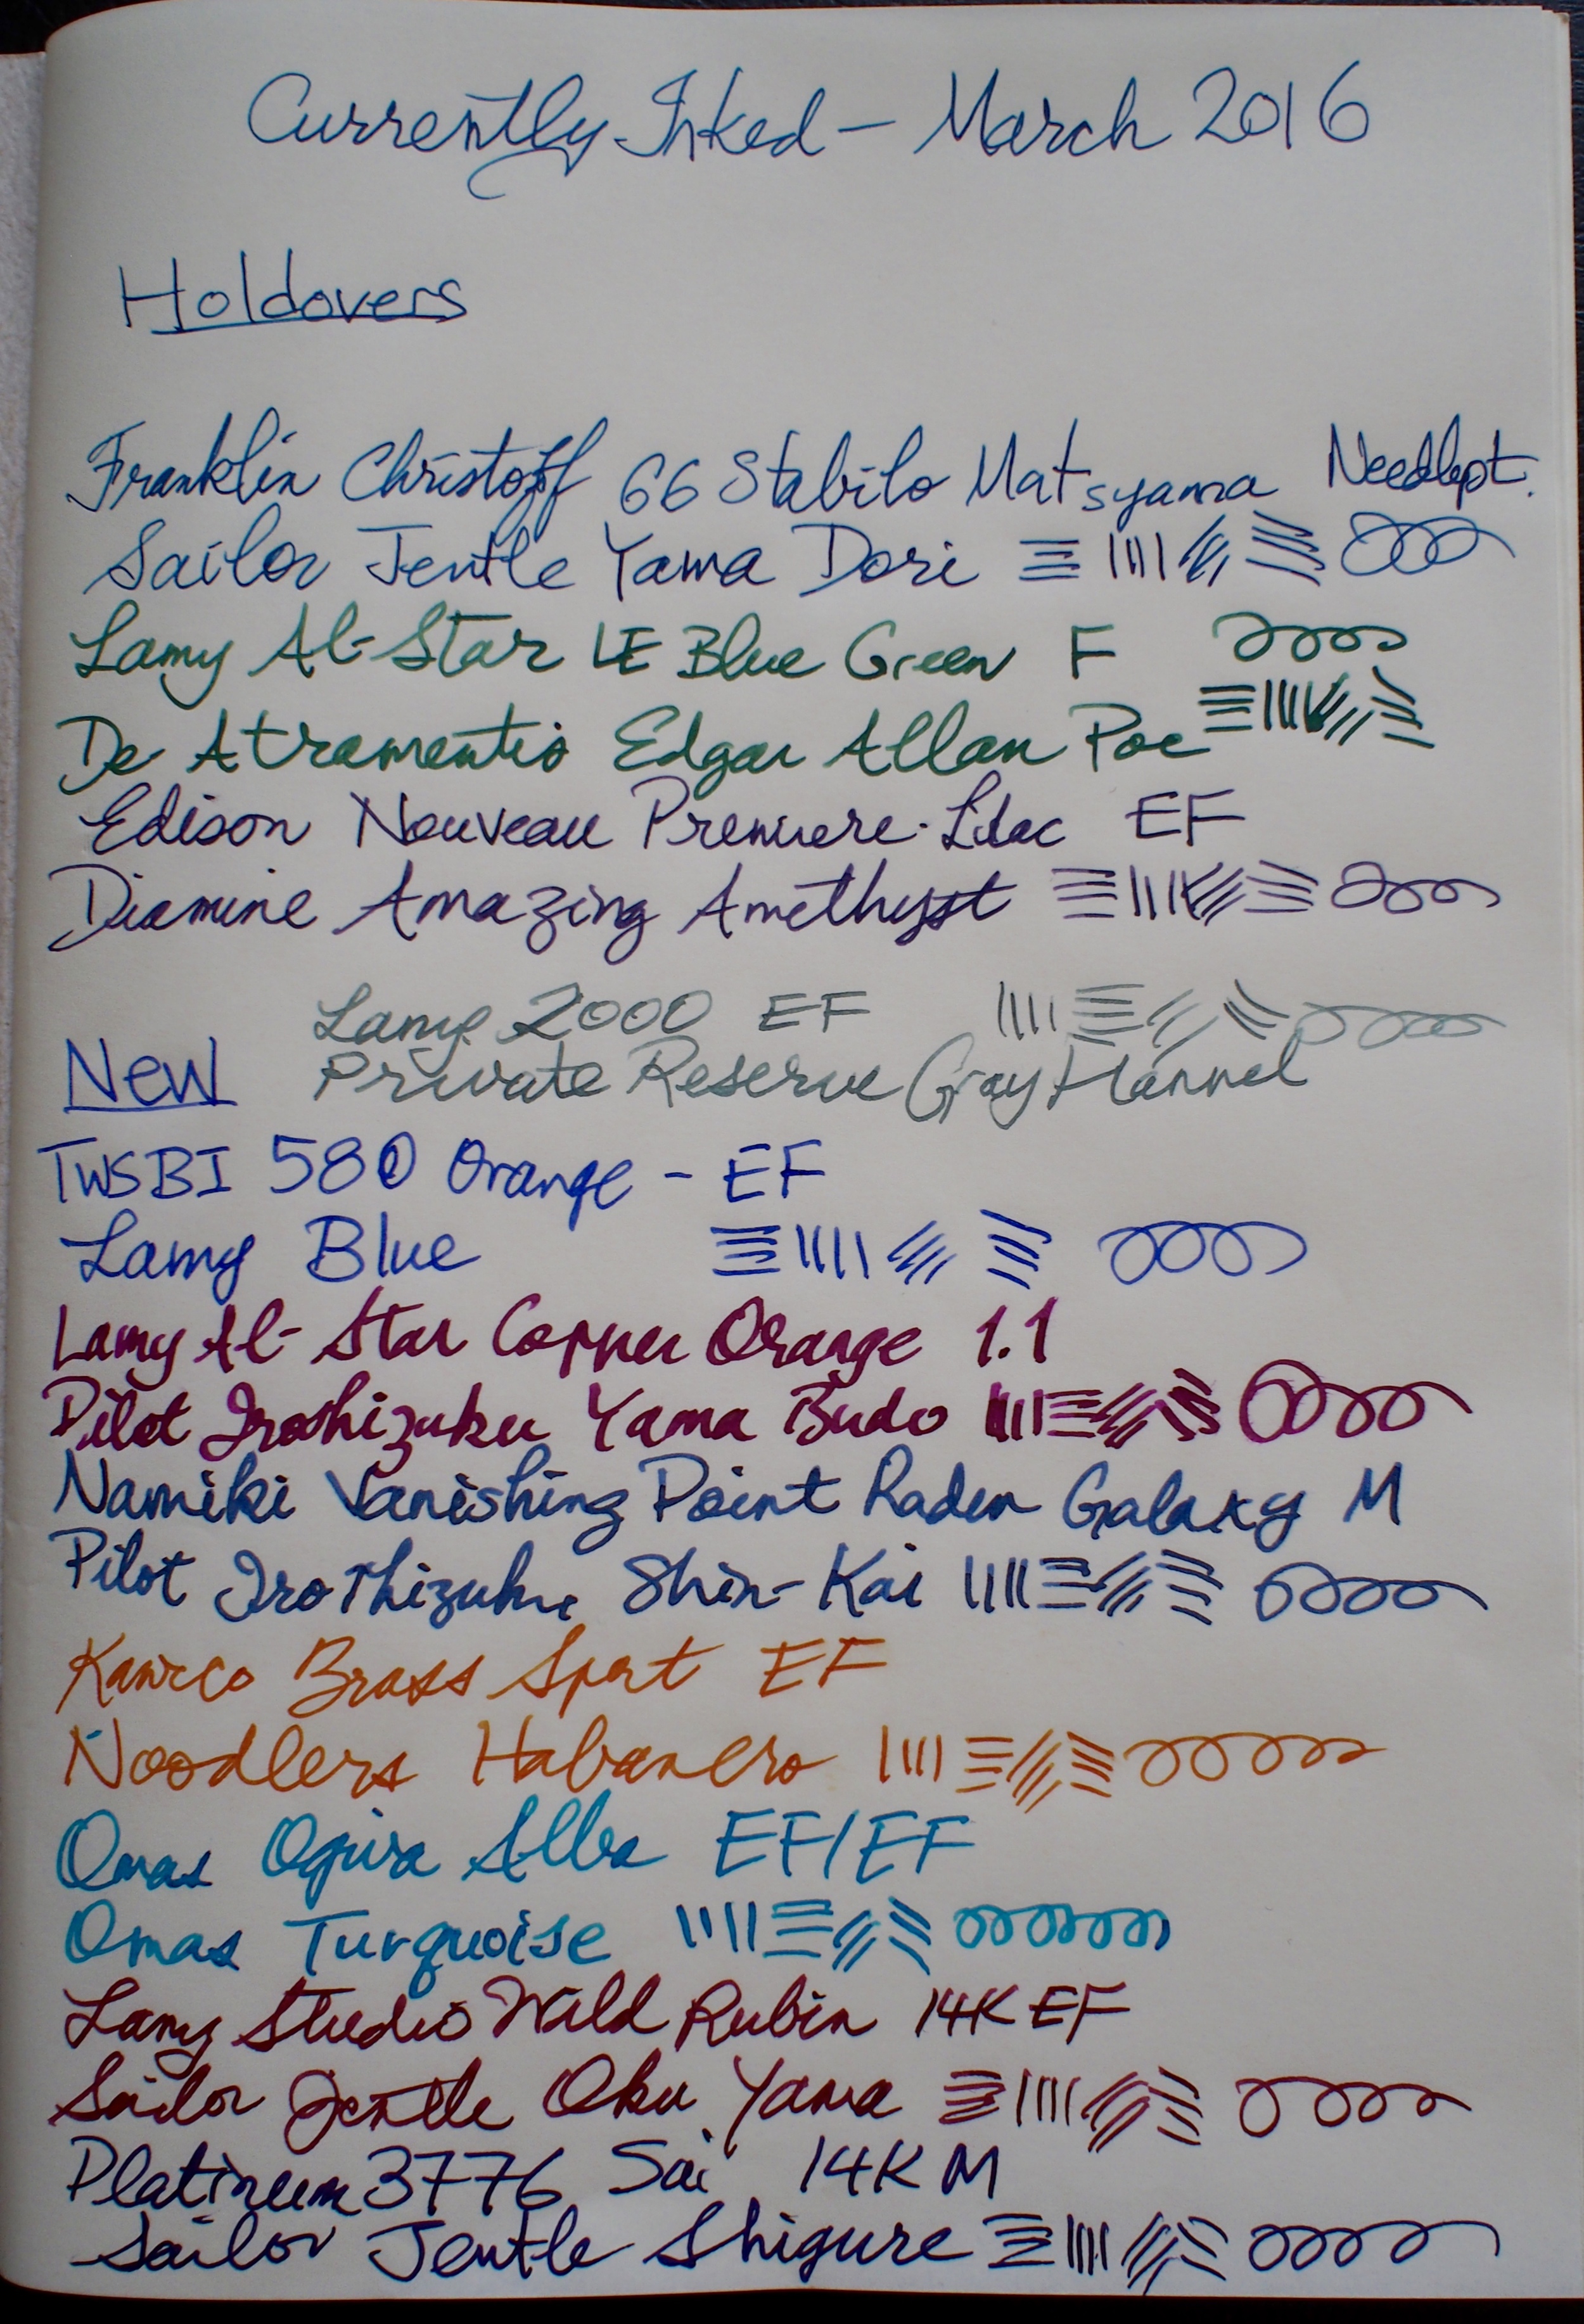 Currently Inked - March 2016
Holdovers
Franklin Christoff 66 Stabilo Matsyama Needlept.
Sailor Jentle Yama Dori
Lamy Al-Star LE Blue Green F
De Atramentis Edgar Allan Poe
Edison Nouveau Premiere Lilac EF
Diamine Amazing Amethyst
Lamy 2000 EF
Private Reserve Gray Flannel
New
TWSBI 580 Orange - EF
Lamy Blue
Lamy Al-Star Copper Orange 1.1
Pilot Iroshizuku Yama Budo
Namiki Vanishing Point Raden Galaxy M
Pilot Iroshizuku Shin-Kai
Kaweco Brass Sport EF
Noodlers Habanero
Omas Ogiva Alba EF/EF
Omas Turquoise
Lamy Studio Wild Rubin 14K EF
Sailor Jentle Oku Yama
Platinum 3776 Sai 14K M
Sailor Jentle Shigure